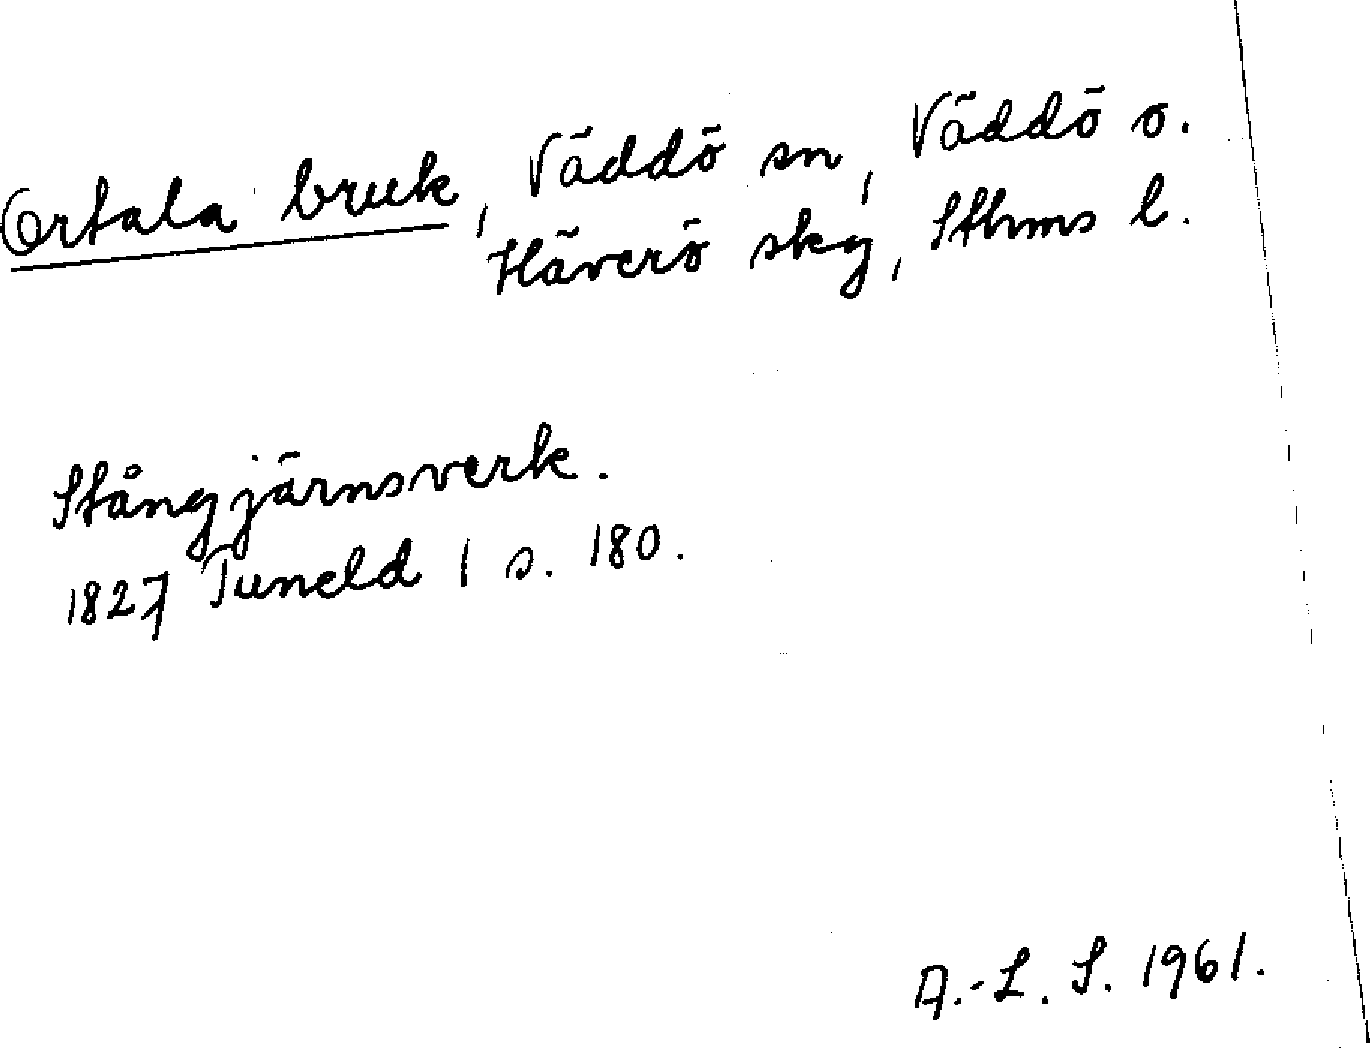 Ortala bruk, Väddö sn, Väddö o.
Häverö skg, Sthms l.
Stångjärnsverk.
1827 Tuneld 1 s. 180.
A.-L. S. 1961.